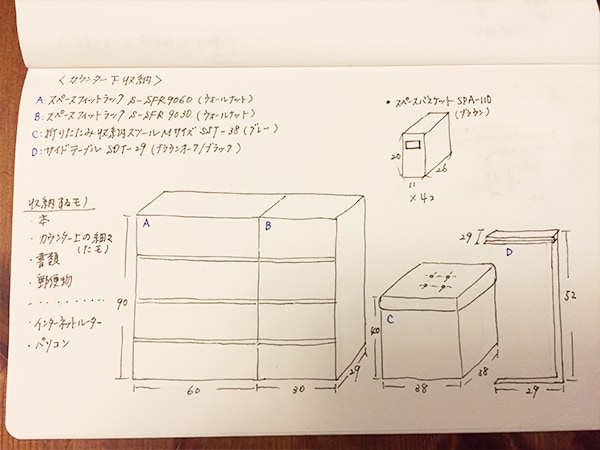 〈カウンター下収納〉
A: スペースフィットラック S-SFR9060 (ウォールナット)
B: スペースフィットラック S-SFR9030 (ウォールナット)
C: 折りたたみ収納スツール Mサイズ SST-38 (グレー)
D: サイドテーブル SDT-29 (ブラウンオーク/ブラック)
• スペースバスケット SPA-110
(ブラウン)
20
11
26
×4コ
収納するモノ
・本
・カウンター上の細々
(したモ)
・書類
・郵便物
・インターネットルーター
・パソコン
A
B
90
60
30
29
C
40
38
38
29
D
52
29